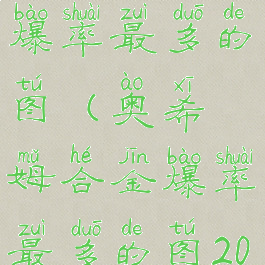 bào shuài zuì duō de
爆率最多的
tú ào xī
图(奥希
mǔ hé jīn bào shuài
姆合金爆率
zuì duō de tú
最多的图20